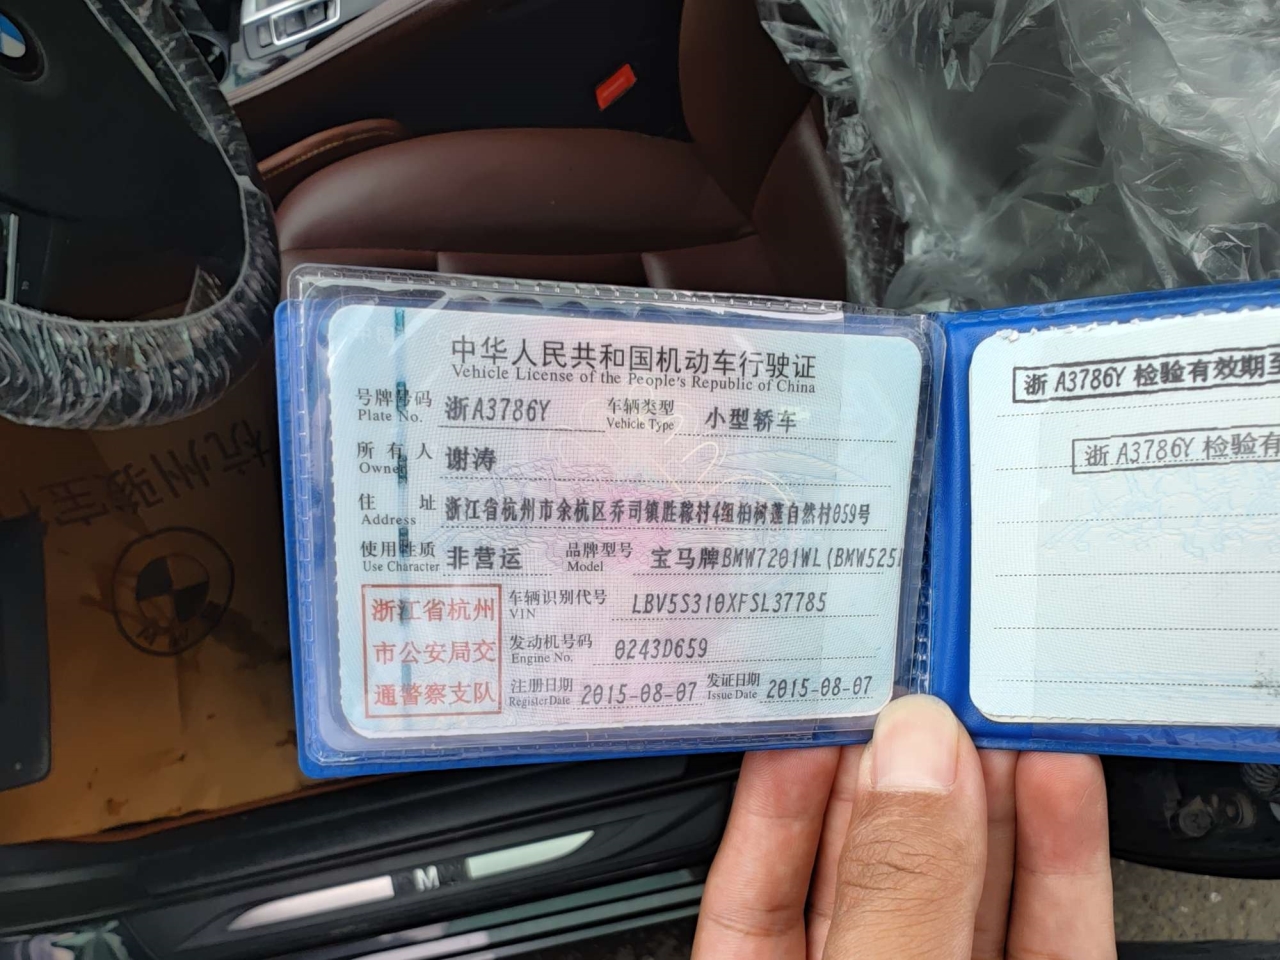 中华人民共和国机动车行驶证
Vehicle License of the People's Republic of China
号牌号码 浙A3786Y 车辆类型 小型轿车
Plate No. Vehicle Type
所有人 谢涛
Owner
住址 浙江省杭州市余杭区乔司镇胜稼村4组柏树蓬自然村059号
Address
使用性质 非营运 品牌型号 宝马牌BMW7201WL(BMW525
Use Character Model
浙江省杭州
市公安局交
通警察支队
车辆识别代号 LBV5S310XFSL37785
VIN
发动机号码 0243D659
Engine No.
注册日期 2015-08-07 发证日期 2015-08-07
Register Date Issue Date
浙A3786Y 检验有效期至
浙A3786Y 检验有
杭州骏宝
BMW
M